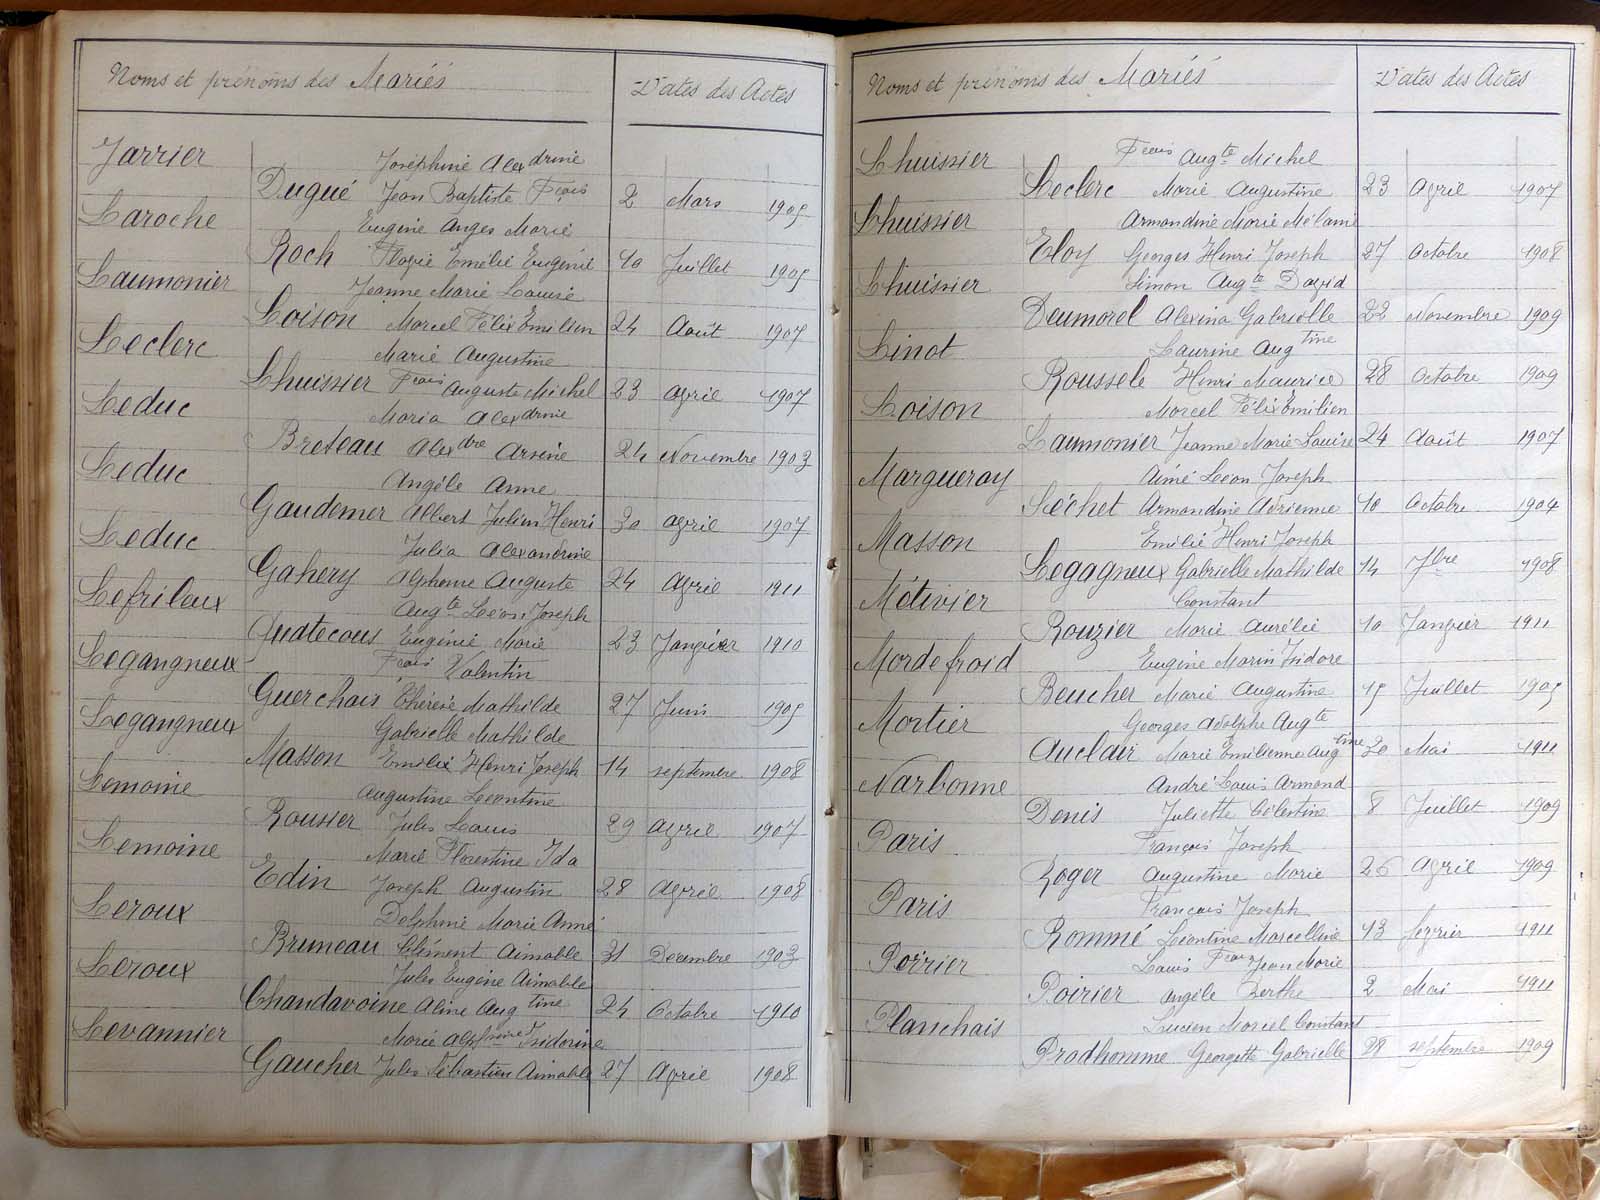 Noms et prénoms des Mariés
Dates des Actes
Jarrier Joséphine Alexdrine
Dugué Jean Baptiste Fçois 2 Mars 1905
Laroche Eugène Anges Marie
Roch Florie Emélie Eugénie 10 Juillet 1905
Laumonier Jeanne Marie Louise
Loison Marcel Félix Emilien 24 Août 1907
Leclerc Marie Augustine
Lhuissier Frcois Auguste Michel 23 Avril 1907
Leduc Maria Alexdrine
Breteau Alexdre Arsène 24 Novembre 1903
Leduc Angèle Anne
Gaudemer Albert Julien Henri 30 Avril 1907
Leduc Julia Alexandrine
Gahery Alphonse Auguste 24 Avril 1911
Lefrileux Augte Léon Joseph
Quatecous Eugénie Marie 23 Janvier 1910
Legangneux Frcois Valentin
Guerchais Thérèse Mathilde 27 Juin 1905
Legangneux Gabrielle Mathilde
Masson Emilie Henri Joseph 14 septembre 1908
Lemoine Augustine Léontine
Rousier Jules Louis 29 Avril 1907
Lemoine Marie Florestine Ida
Edin Joseph Augustin 28 Avril 1908
Leroux Delphine Marie Anne
Bruneau Clément Aimable 31 Decembre 1903
Leroux Jules Eugène Aimable
Chandavoine Aline Augtine 24 Octobre 1910
Levannier Marie Alphsine Isidorine
Gaucher Jules Sébastien Aimable 27 Avril 1908
Noms et prénoms des Mariés
Dates des Actes
Lhuissier Frcois Augte Michel
Leclerc Marie Augustine 23 Avril 1907
Lhuissier Armandine Marie Mélanie
Eloy Georges Henri Joseph 27 Octobre 1908
Lhuissier Simon Augte David
Deumorel Alexina Gabrielle 22 Novembre 1909
Linot Laurine Augtine
Roussele Henri Maurice 28 Octobre 1909
Loison Marcel Félix Emilien
Laumonier Jeanne Marie Louise 24 Août 1907
Margueray Aimé Léon Joseph
Séchet Armandine Adrienne 10 Octobre 1904
Masson Emilie Henri Joseph
Legagneux Gabrielle Mathilde 14 7bre 1908
Métivier Constant
Rouzier Marie Aurélie 10 Janvier 1911
Mordefroid Eugène Marin Isidore
Beucher Marie Augustine 15 Juillet 1905
Mortier Georges Adolphe Augte
Auclair Marie Emilienne Augtine 30 Mai 1911
Narbonne André Louis Armand
Denis Juliette Célestine 8 Juillet 1909
Paris François Joseph
Roger Augustine Marie 26 Avril 1909
Paris François Joseph
Rommé Léontine Marcelline 13 fevrier 1911
Poirier Louis Frcois Jean Marie
Poirier Angèle Berthe 2 Mai 1911
Planchais Lucien Marcel Constant
Prodhomme Georgette Gabrielle 28 septembre 1909